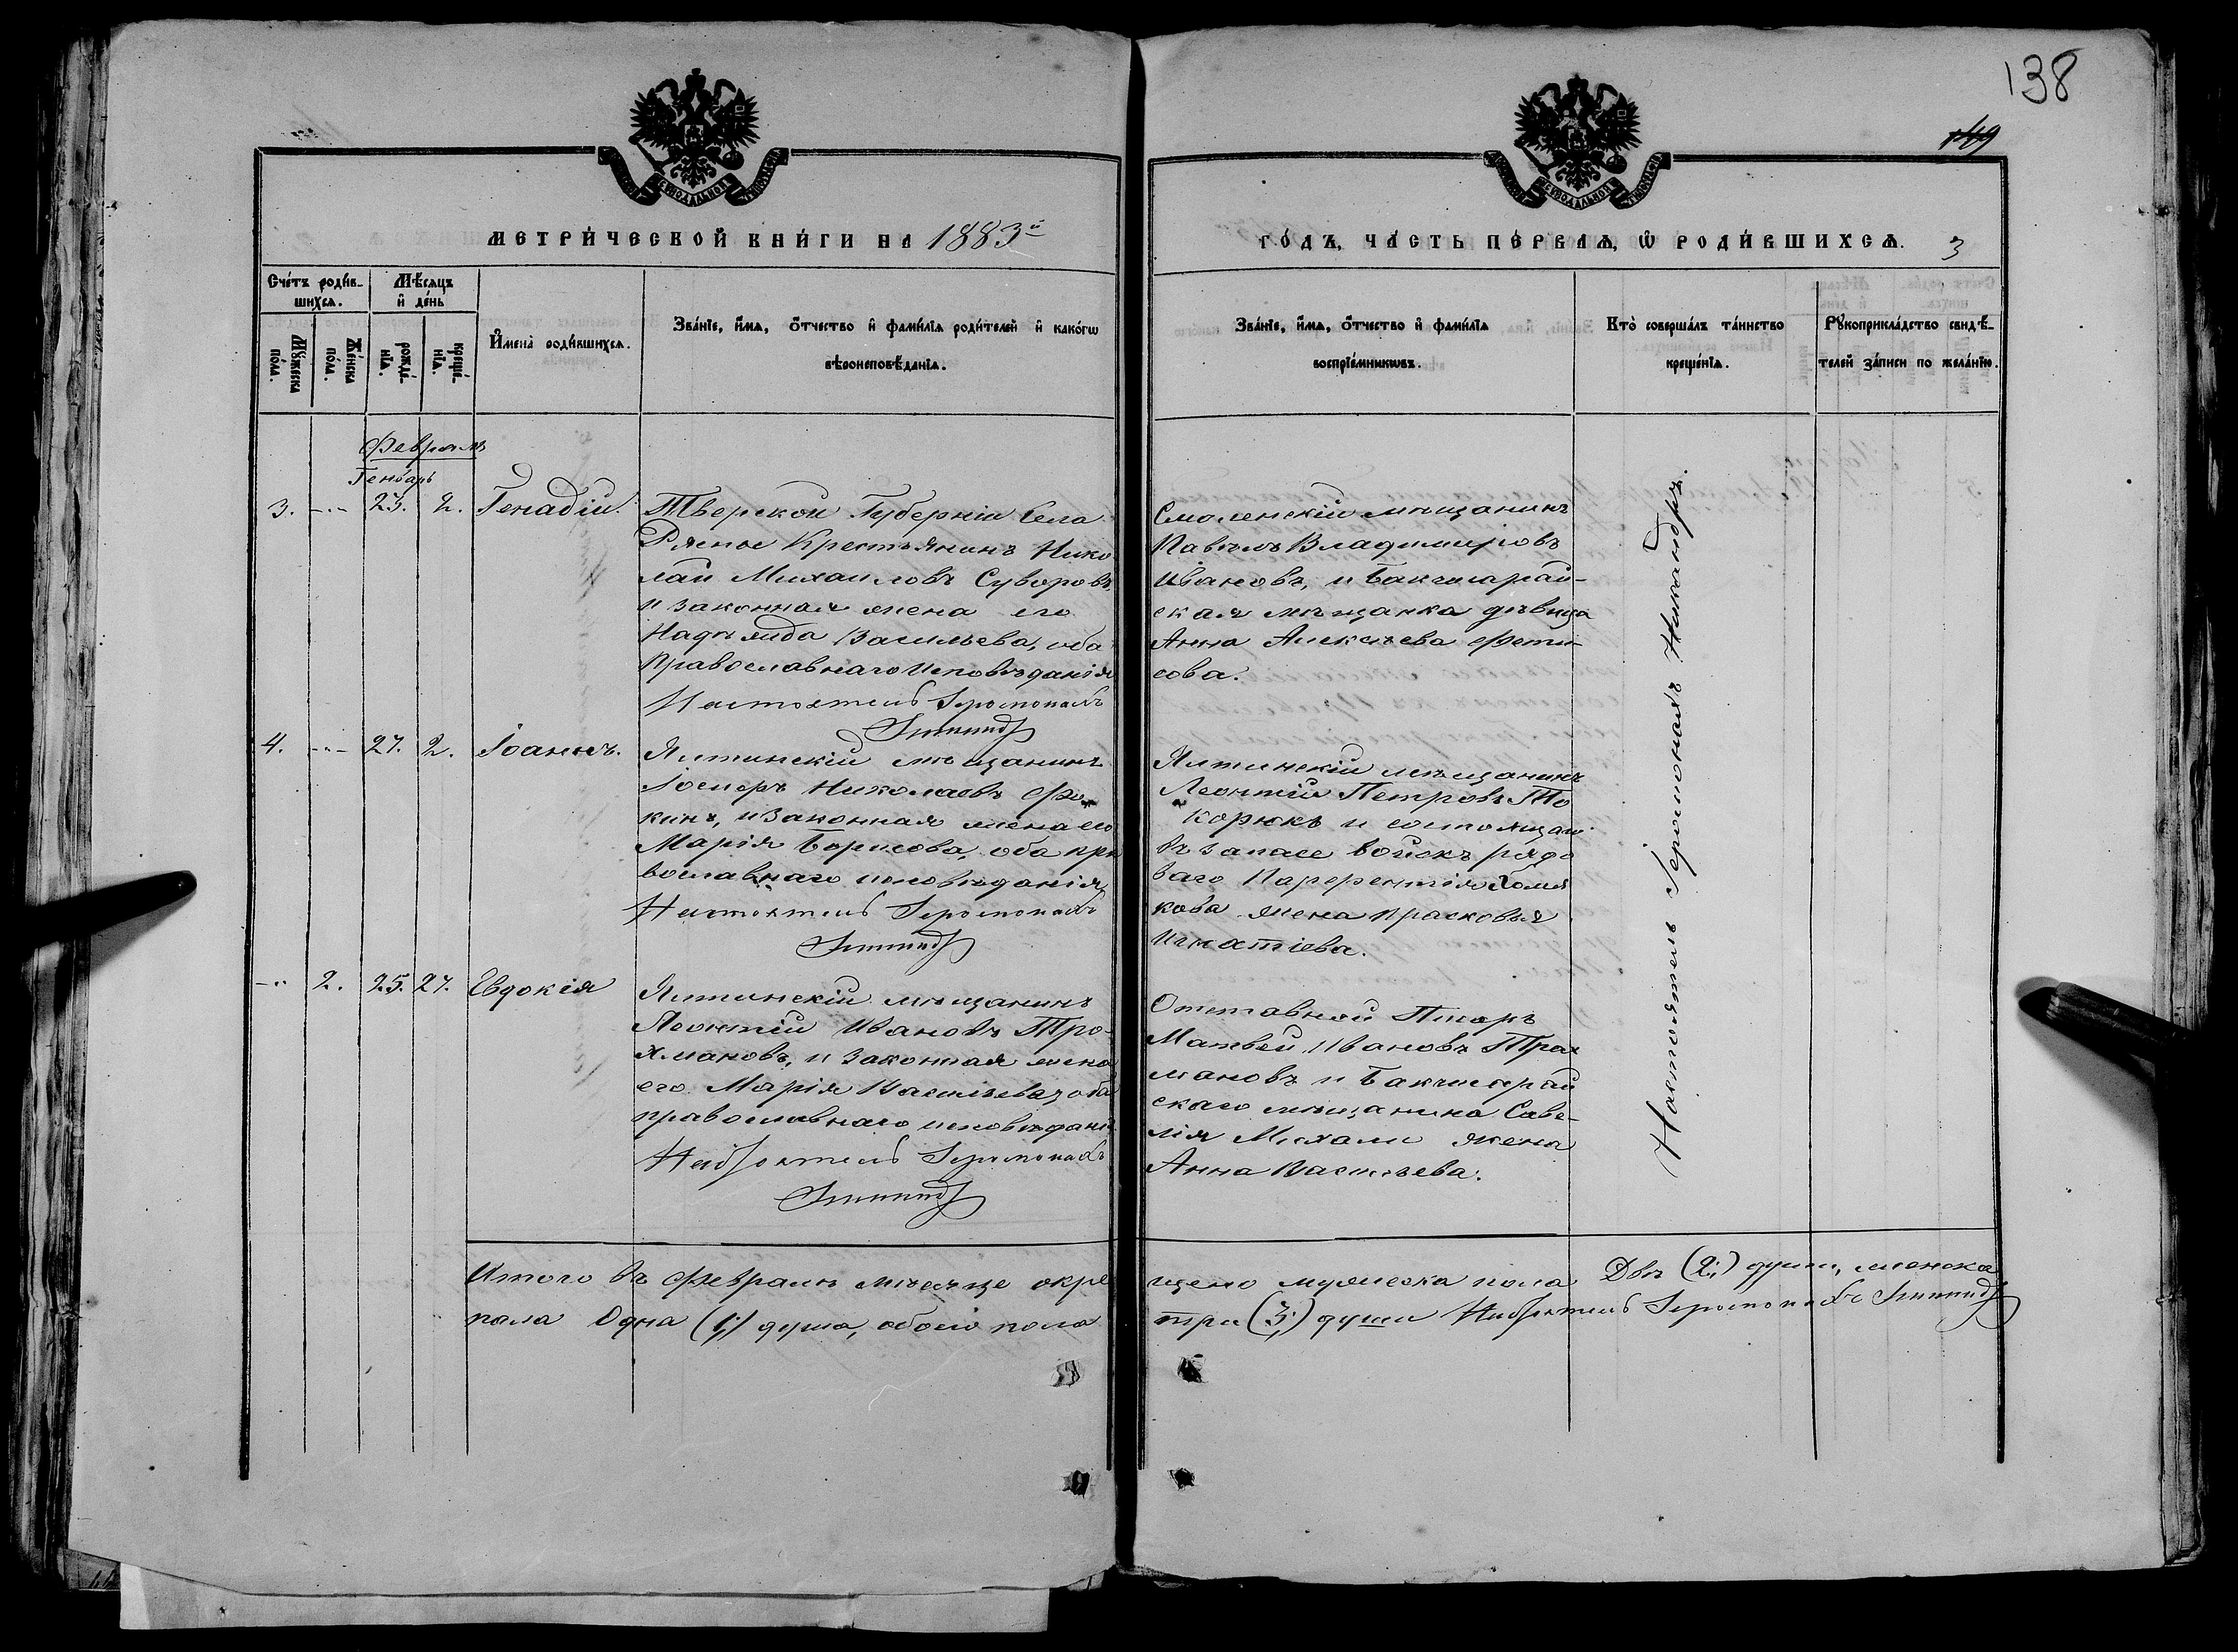 138
149
МЕТРИ́ЧЕСКОЙ КНИ́ГИ НА 1883й
ГО́ДЪ, ЧА́СТЬ ПЕ́РВАѦ, Ѡ РОДИ́ВШИХСѦ. 3
Сче́тъ роди́в-
шихсѧ.
Мꙋ́жеска по́ла.
Же́нска по́ла.
Мѣ́сѧцъ
и де́нь
рожде́-
нїѧ.
креще́-
нїѧ.
И҆мена̀ роди́вшихсѧ.
Зва́нїе, и҆́мѧ, ѻ҆́тчество и҆ фами́лїѧ роди́телей и҆ како́гѡ
вѣроисповѣ́данїѧ.
Зва́нїе, и҆́мѧ, ѻ҆́тчество и҆ фами́лїѧ
воспрїе́мникѡвъ.
Кто̀ соверша́лъ та́инство
креще́нїѧ.
Рꙋкоприкла́дство свидѣ́-
телей за́писи по жела́нїю.
Февраль
Генварь
3. -"- 23. 2. Генадій.
Тверской Губерніи Села
Рясное Крестьянинъ Нико
лай Михаиловъ Суворовъ,
и законная жена его
Надежда Васильева, оба
Православнаго исповѣданія
Настоятель Іеромонахъ
Смоленскій мѣщанинъ
Павелъ Владиміровъ
Ивановъ, и Бакчисарай-
ская мѣщанка дѣвица
Анна Алексѣева Фети-
сова.
4. -"- 27. 2. Іоаннъ.
Ялтинскій мѣщанинъ
Іосифъ Николаевъ Фо
кинъ, и законная жена его
Марія Борисова, оба пра
вославнаго исповѣданія
Настоятель Іеромонахъ
Ялтинскій мѣщанинъ
Леонтій Петровъ То
корюкъ и состоящаго
въ запасе войскъ рядо
ваго Парфентія Хомя
кова жена Прасковья
Игнатіева.
-" 2. 25. 27. Евдокія
Ялтинскій мѣщанинъ
Леонтій Ивановъ Тро-
хмановъ, и законная жена
его Марія Васильева, оба
православнаго исповѣданія
Настоятель Іеромонахъ
Отставной Писарь
Матвей Ивановъ Трах
мановъ и Бакчисарай
скаго мѣщанина Саве-
лія Михали жена
Анна Васильева.
Настоятель Іеромонахъ Никандръ.
Итого въ Февралѣ мѣсяце окре
щено мужеска пола Двѣ (2;) души, женска
пола Одна (1;) душа, обоего пола
три (3;) души Настоятель Іеромонахъ